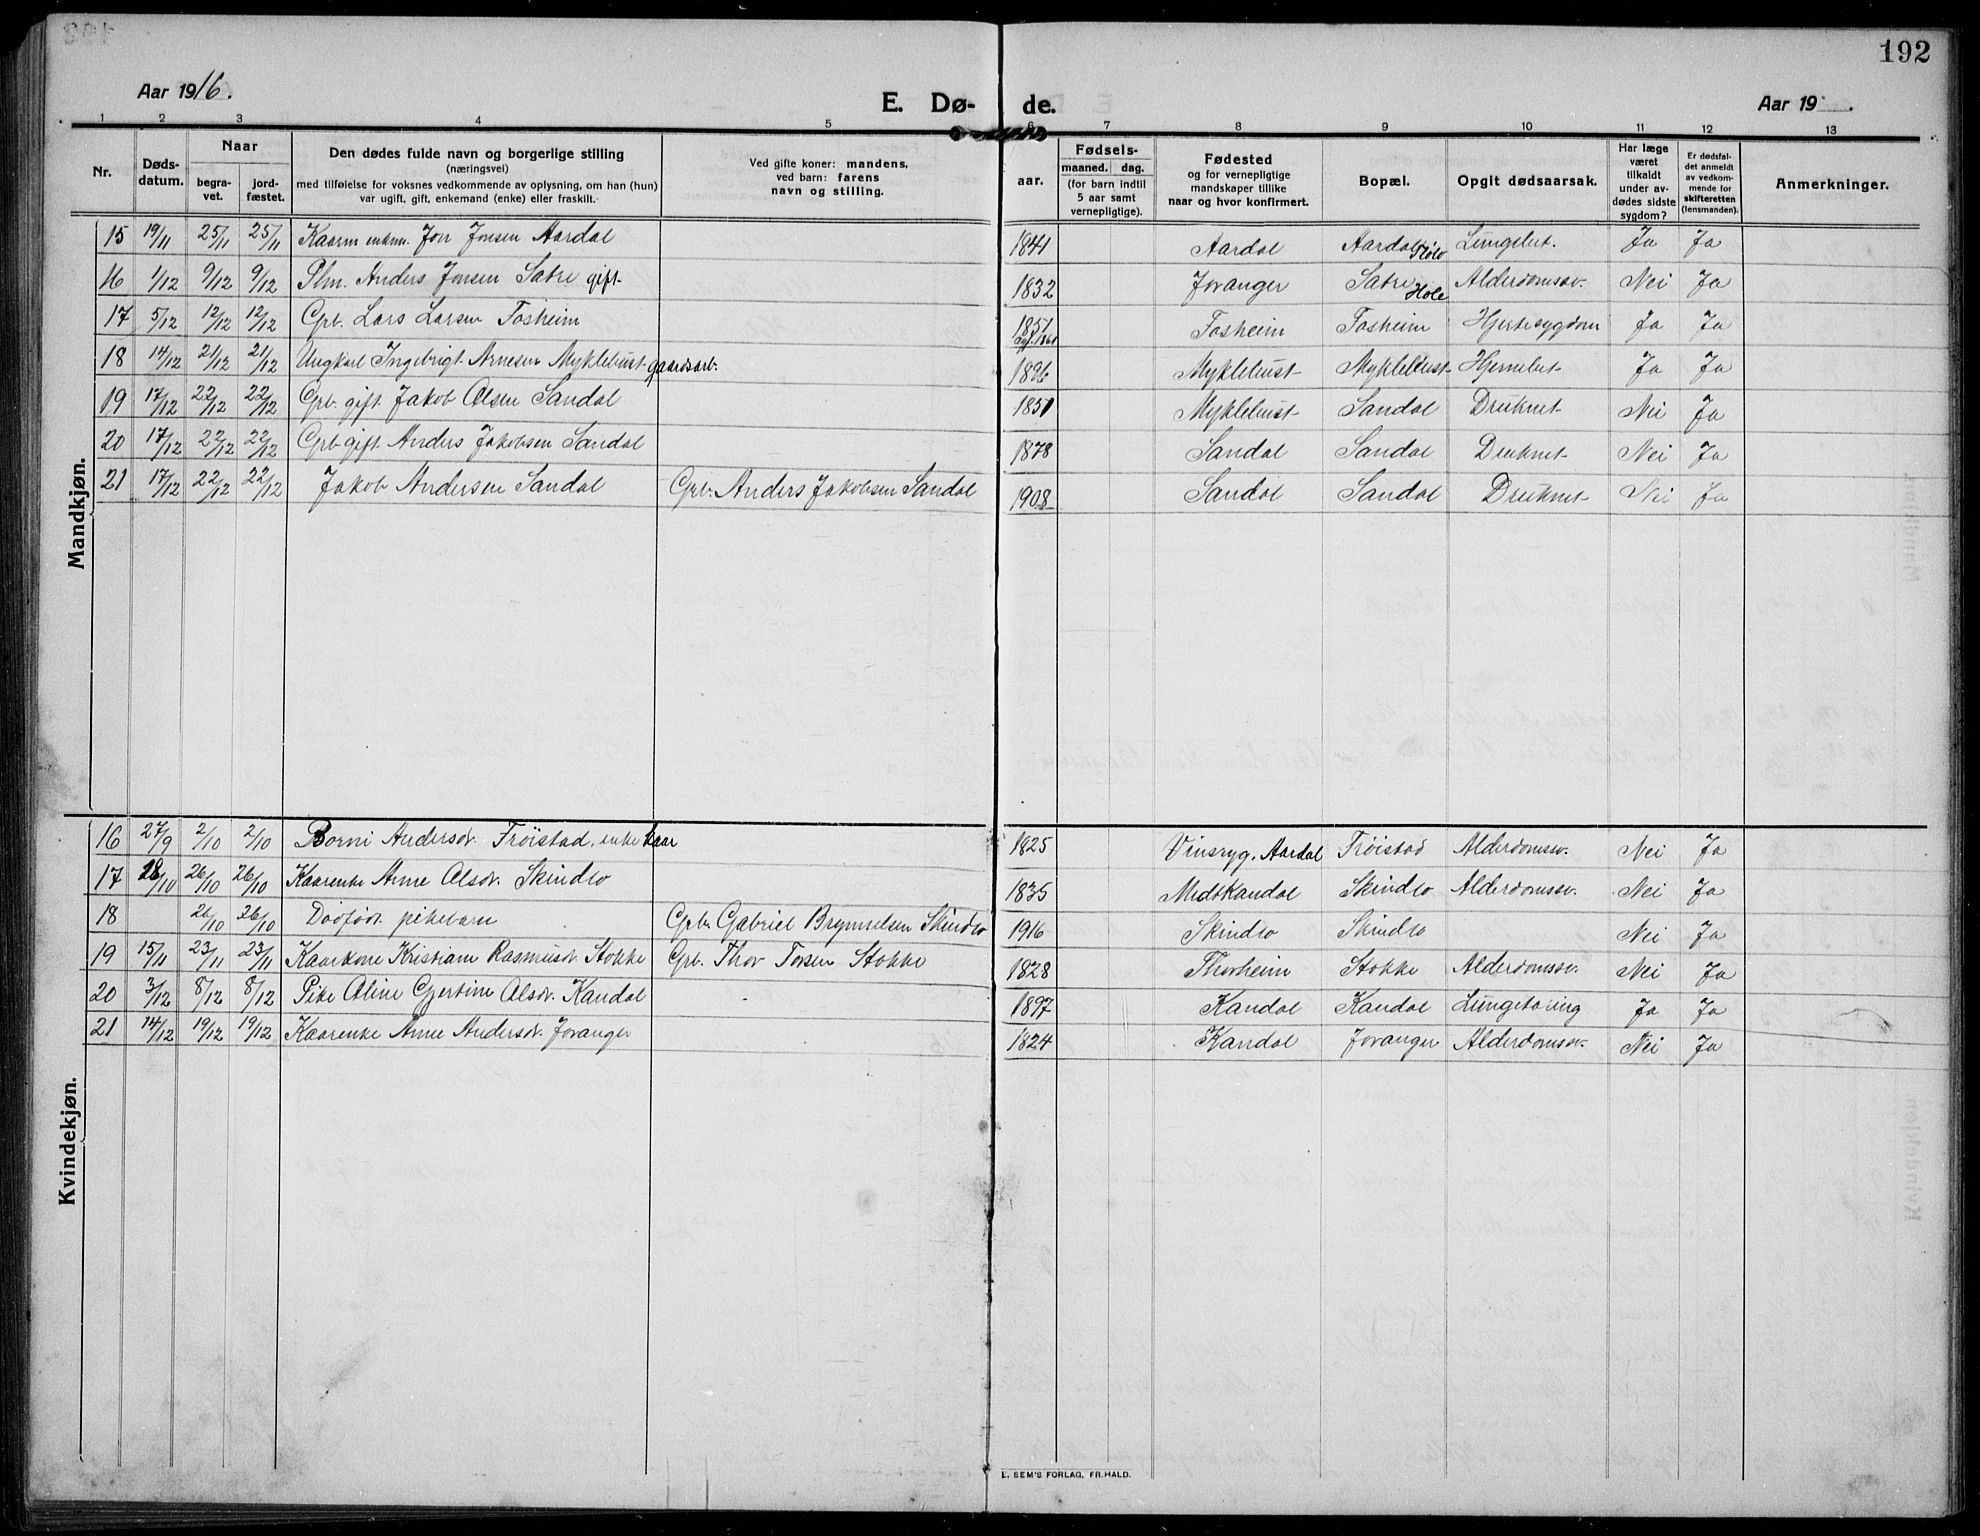 192
Aar 1916.
E. Dø-
de.
Aar 19 .
1 2 3 4 5 6 7 8 9 10 11 12 13
Nr.
Døds-
datum.
Naar
begra-
vet.
jord-
fæstet.
Den dødes fulde navn og borgerlige stilling
(næringsvei)
med tilføielse for voksnes vedkommende av oplysning, om han (hun)
var ugift, gift, enkemand (enke) eller fraskilt.
Ved gifte koner: mandens,
ved barn: farens
navn og stilling.
Fødsels-
aar.
maaned. dag.
(for barn indtil
5 aar samt
vernepligtige).
Fødested
og for vernepligtige
mandskaper tillike
naar og hvor konfirmert.
Bopæl.
Opgit dødsaarsak.
Har læge
været
tilkaldt
under av-
dødes sidste
sygdom?
Er dødsfal-
det anmeldt
av vedkom-
mende for
skifteretten
(lensmanden).
Anmerkninger.
Mandkjøn.
15 19/11 25/11 25/11 Kaarm enkm. Jon Jonsen Aardal 1841 Aardal Aardal Lungebet. Ja Ja
16 1/12 9/12 9/12 Plm. Anders Jonsen Sætre gift 1832 Jovanger Sætre Hole Alderdomssv. Nei Ja
17 5/12 12/12 12/12 Grb. Lars Larsen Fosheim 1851 Fosheim Fosheim Hjertesygdom Ja Ja
18 14/12 21/12 21/12 Ungkarl Ingebrigt Arnesen Myklebust gaardsarb. 1896 Myklebust Myklebust Hjernebet. Ja Ja
19 17/12 22/12 22/12 Grb. gift Jakob Olsen Sandal 1851 Myklebust Sandal Druknet Nei Ja
20 17/12 22/12 22/12 Grb gift Anders Jakobsen Sandal 1878 Sandal Sandal Druknet Nei Ja
21 17/12 22/12 22/12 Jakob Andersen Sandal Grb. Anders Jakobsen Sandal 1908 Sandal Sandal Druknet Nei Ja
Kvindekjøn.
16 27/9 2/10 2/10 Borni Andersdr. Frøistad, enke kaar 1825 Vinsryg. Aardal Frøistad Alderdomssv. Nei Ja
17 18/10 26/10 26/10 Kaarenke Anne Olsdr. Skindlo 1835 Midtkandal Skindlo Alderdomssv. Nei Ja
18 26/10 26/10 Dødfødt pikebarn Grb. Gabriel Brynnelsen Skindlo 1916 Skindlo Skindlo Nei Ja
19 15/11 23/11 23/11 Kaarkone Kristiane Rasmusdr Stokke Grb. Thor Torsen Stokke 1828 Thorheim Stokke Alderdomssv. Nei Ja
20 3/12 8/12 8/12 Pike Oline Gjertine Olsdr. Kandal 1897 Kandal Kandal Lungetæring Ja Ja
21 14/12 19/12 19/12 Kaarenke Anne Andersdr. Jovanger 1824 Kandal Jovanger Alderdomssv. Nei Ja
E. SEM'S FORLAG, FR.HALD.